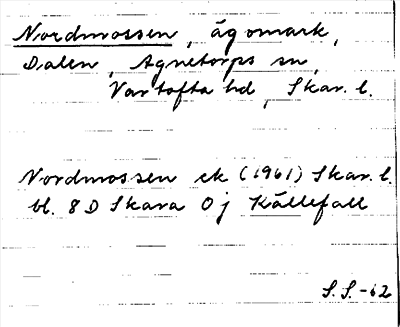 Nordmossen, ägomark,
Dalen, Agnetorps sn,
Vartofta hd, Skar. l.
Nordmossen ek (1961) Skar. l.
bl. 8 D Skara 0 j Källefall
S. S. -62